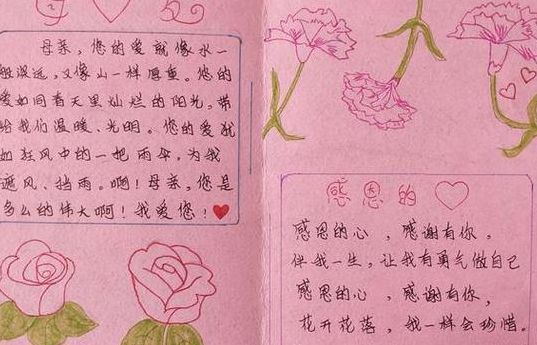 母 爱
母亲，您的爱就像水一
般深远，又像山一样厚重。您的
爱如同春天里灿烂的阳光，带
给我们温暖、光明。您的爱犹
如狂风中的一把雨伞，为我
遮风、挡雨。啊！母亲，您是
多么的伟大啊！我爱您！
感恩的
感恩的心，感谢有你。
伴我一生，让我有勇气做自己
感恩的心，感谢有你，
花开花落，我一样会珍惜。